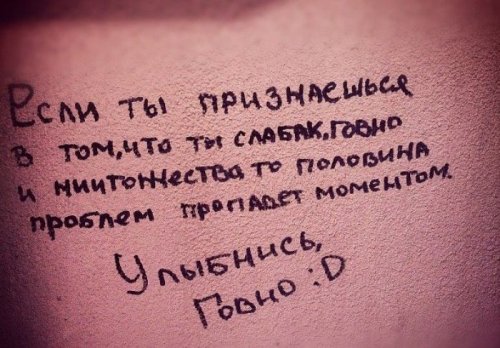 Если ты признаешься
в том,что ты слабак,говно
и ниитожества то половина
проблем пропадет моментом.
Улыбнись,
Говно :D